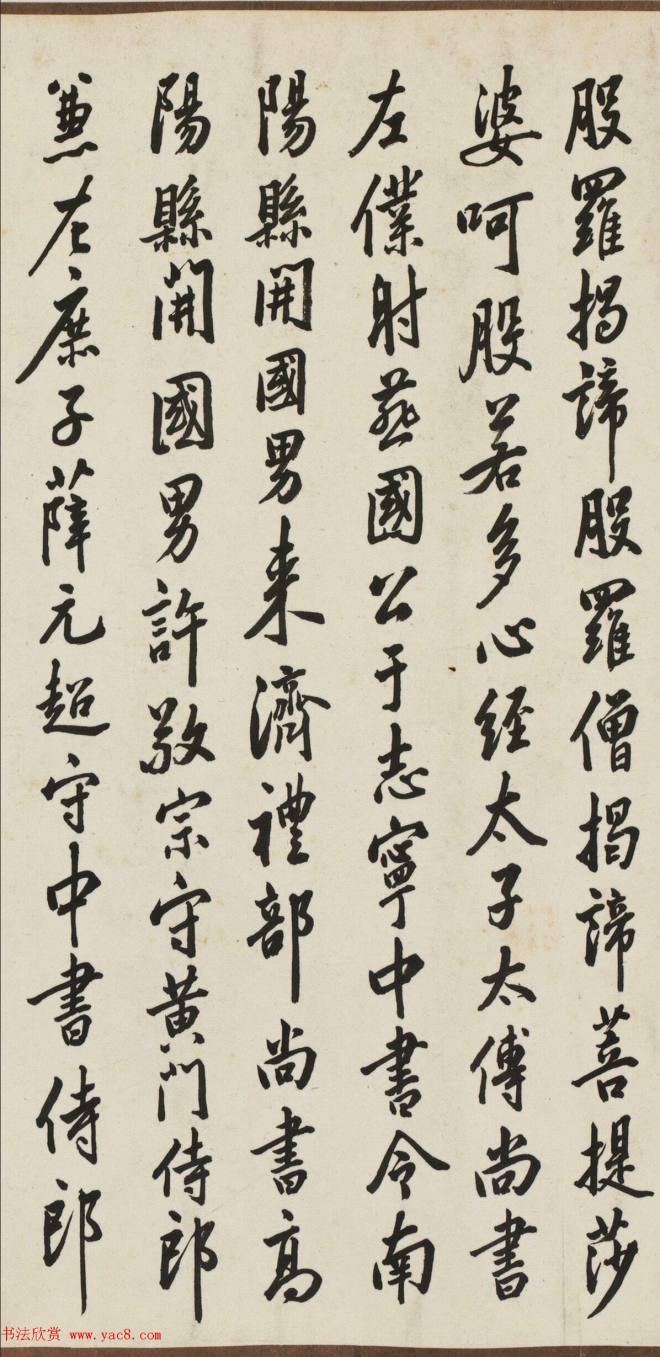 般羅揭諦般羅僧揭諦菩提莎
婆呵般若多心經太子太傅尚書
左僕射燕國公于志寧中書令南
陽縣開國男来濟禮部尚書高
陽縣開國男許敬宗守黃門侍郎
兼左庶子薛元超守中書侍郎
书法欣赏 www.yac8.com